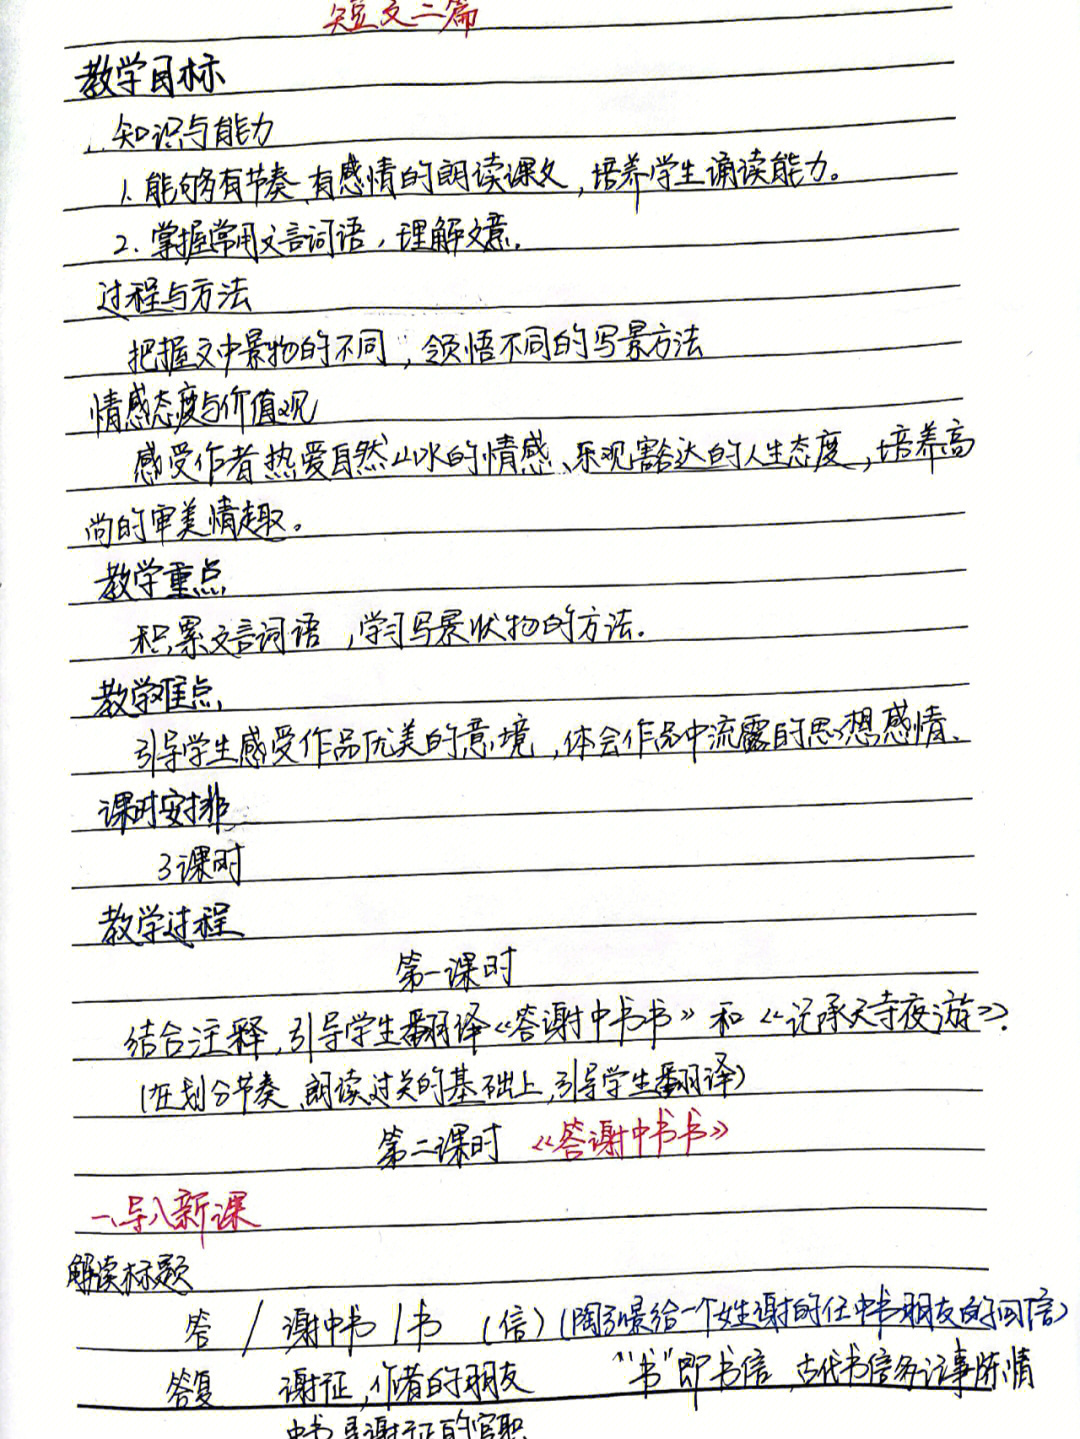 短文二篇
教学目标
知识与能力
1. 能够有节奏、有感情的朗读课文，培养学生诵读能力。
2. 掌握常用文言词语，理解文意。
过程与方法
把握文中景物的不同，领悟不同的写景方法
情感态度与价值观
感受作者热爱自然山水的情感、乐观豁达的人生态度，培养高
尚的审美情趣。
教学重点
积累文言词语，学习写景状物的方法.
教学难点
引导学生感受作品优美的意境，体会作品中流露的思想感情、
课时安排
3课时
教学过程
第一课时
结合注释，引导学生翻译《答谢中书书》和《记承天寺夜游》.
(在划分节奏、朗读过关的基础上，引导学生翻译)
第二课时 《答谢中书书》
一、导入新课
解读标题
答 / 谢中书 / 书 (信) (陶弘景给一个姓谢的任中书朋友的回信)
答复 谢征，作者的朋友 “书”即书信，古代书信多记事陈情
中书是谢征的官职